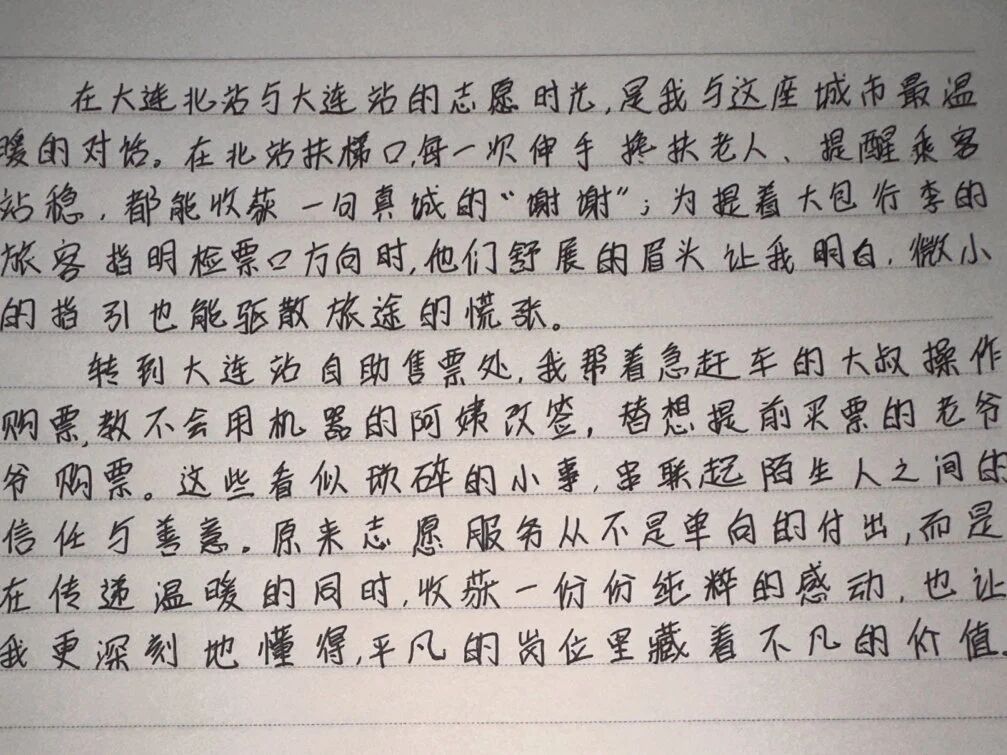 在大连北站与大连站的志愿时光,是我与这座城市最温
暖的对话。在北站扶梯口,每一次伸手搀扶老人、提醒乘客
站稳,都能收获一句真诚的“谢谢”;为提着大包行李的
旅客指明检票口方向时,他们舒展的眉头让我明白,微小
的指引也能驱散旅途的慌张。
转到大连站自助售票处,我帮着急赶车的大叔操作
购票,教不会用机器的阿姨改签,替想提前买票的老爷
爷购票。这些看似琐碎的小事,串联起陌生人之间的
信任与善意。原来志愿服务从不是单向的付出,而是
在传递温暖的同时,收获一份份纯粹的感动,也让
我更深刻地懂得,平凡的岗位里藏着不凡的价值。